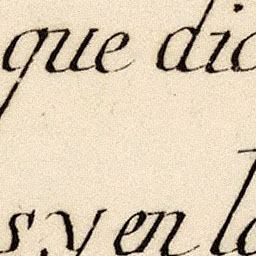 que dic
s y en la